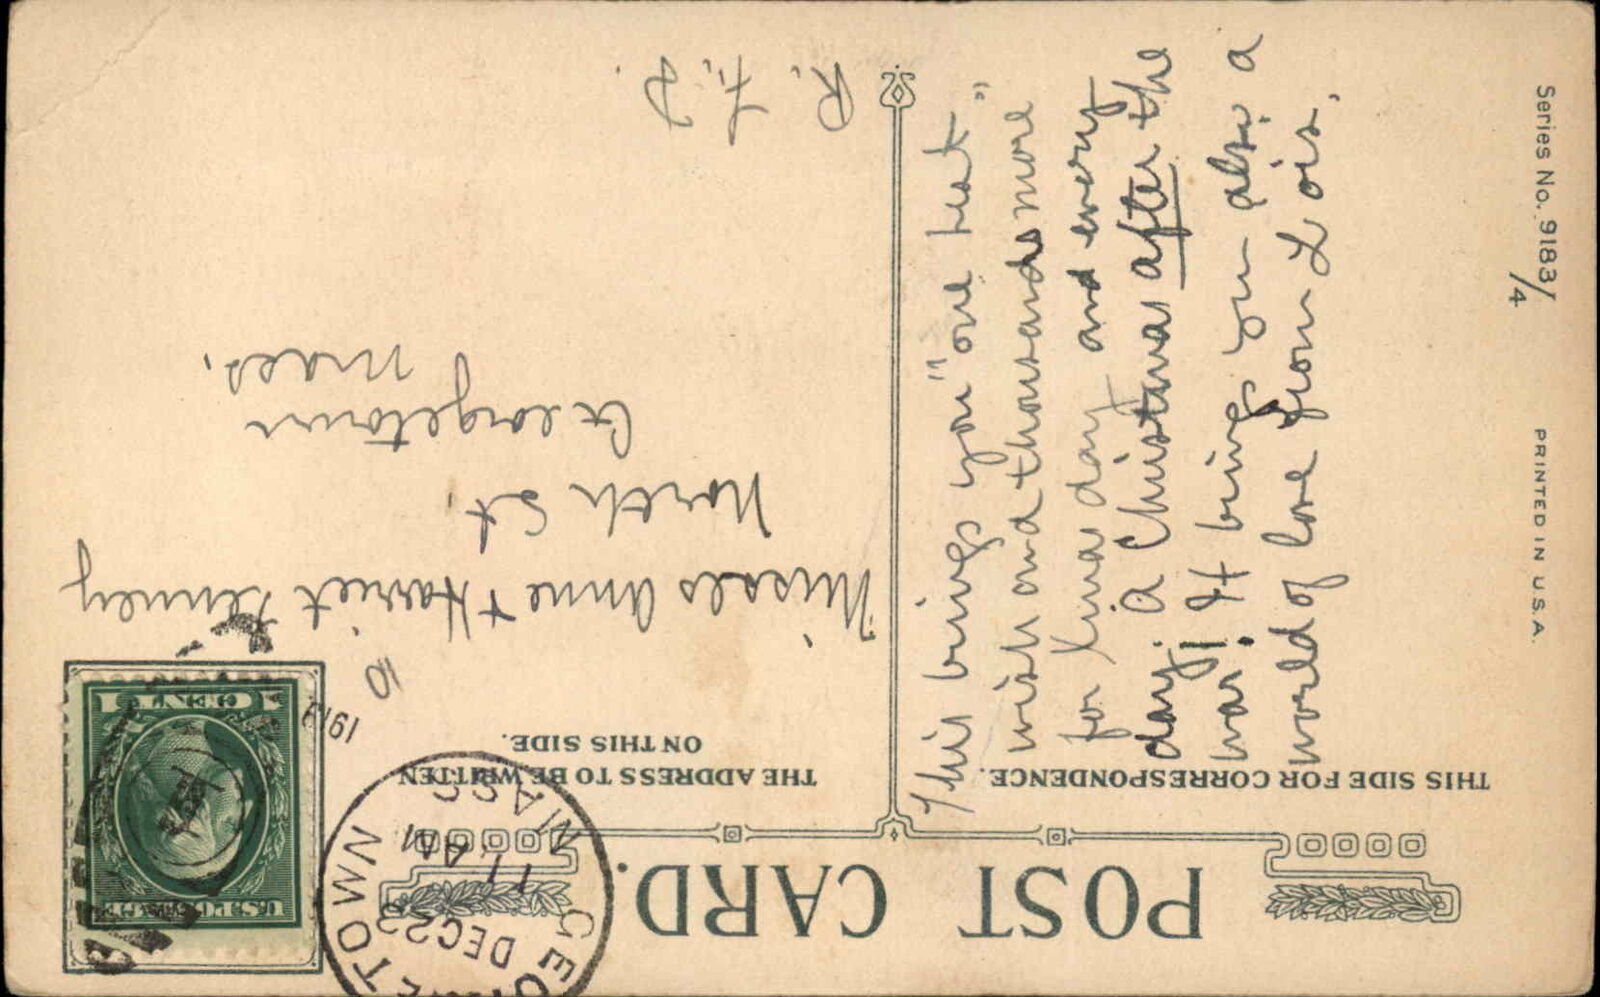 POST CARD.
THIS SIDE FOR CORRESPONDENCE.
THE ADDRESS TO BE WRITTEN
ON THIS SIDE.
GEORGETOWN
DEC 22
11 AM
MASS
U.S. POSTAGE
1 CENT 1
10
Misses Anne & Harriet Tenney
North St.
Georgetown
Mass.
R. F. D.
This brings you "one heat"
wish and thousands more
for Xmas day and every
day. A Christmas after the
war! It brings you also a
world of love from Lois.
Series No. 9183/
/4
PRINTED IN U.S.A.